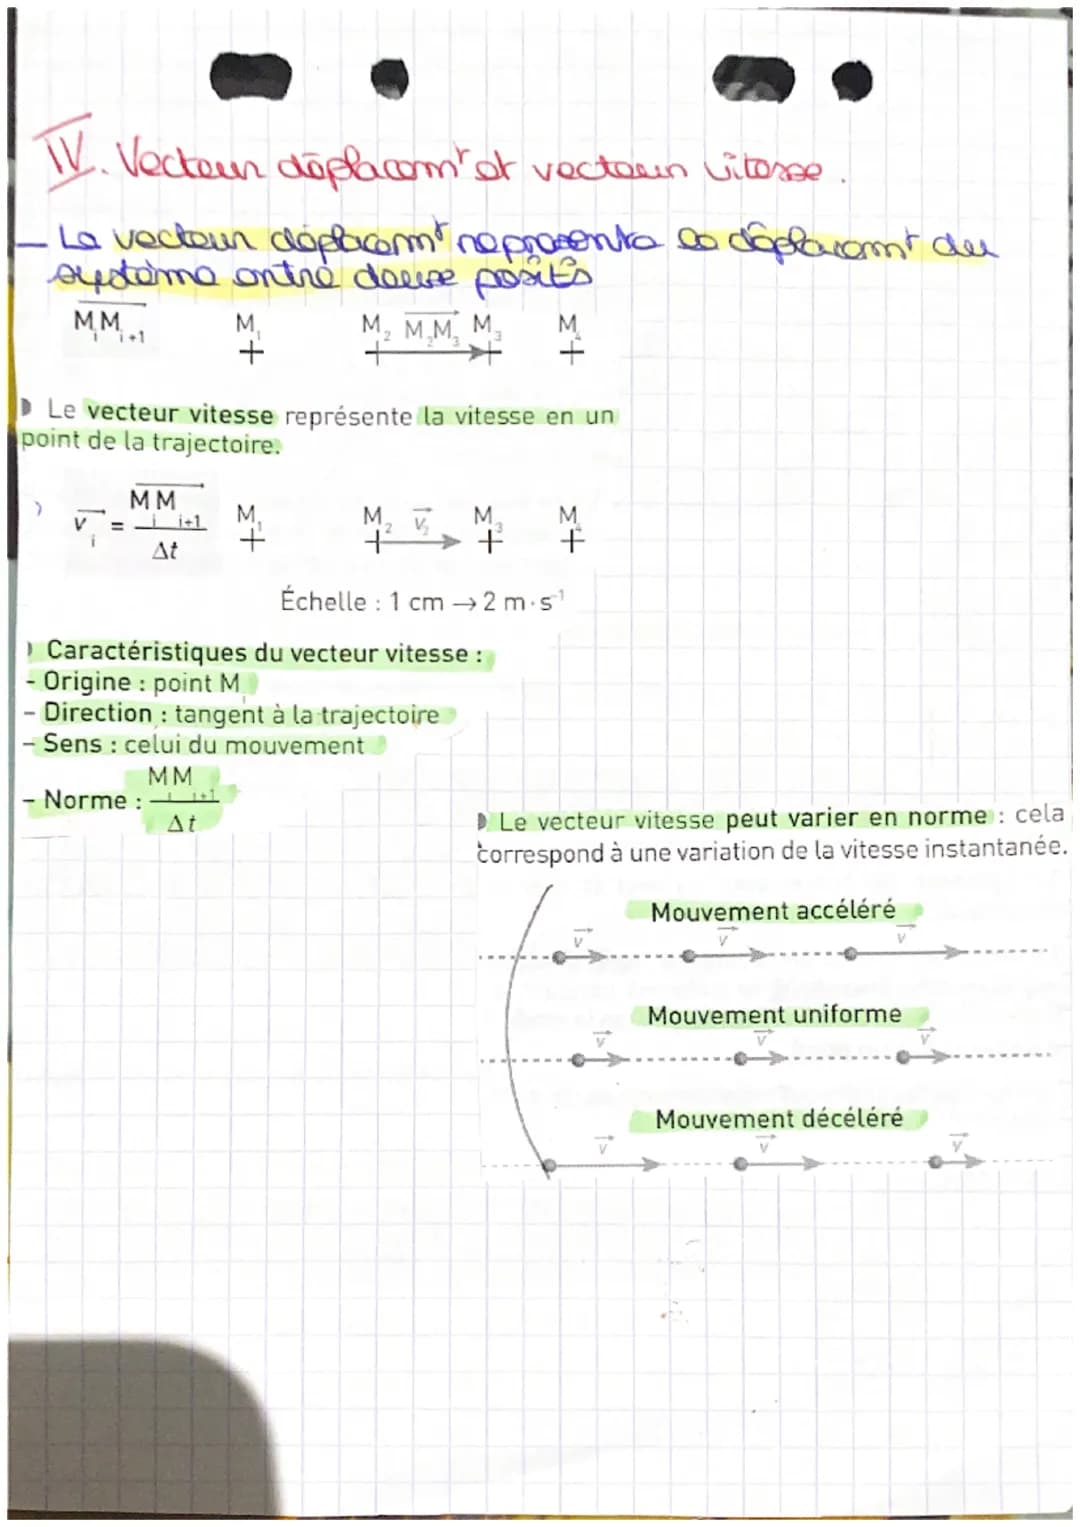 IV. Vecteur déplacemt et vecteur vitesse.
- Le vecteur déplacemt représente le déplacemt du
système entre deux posit°s
MiMi+1 M1 M2 M2M3 M3 M4
Le vecteur vitesse représente la vitesse en un
point de la trajectoire.
vi = MiMi+1 / Δt M1 M2 v2 M3 M4
Échelle : 1 cm → 2 m·s-1
Caractéristiques du vecteur vitesse :
- Origine : point Mi
- Direction : tangent à la trajectoire
- Sens : celui du mouvement
- Norme : MiMi+1 / Δt
Le vecteur vitesse peut varier en norme : cela
correspond à une variation de la vitesse instantanée.
Mouvement accéléré
v v v
Mouvement uniforme
v v v
Mouvement décéléré
v v v